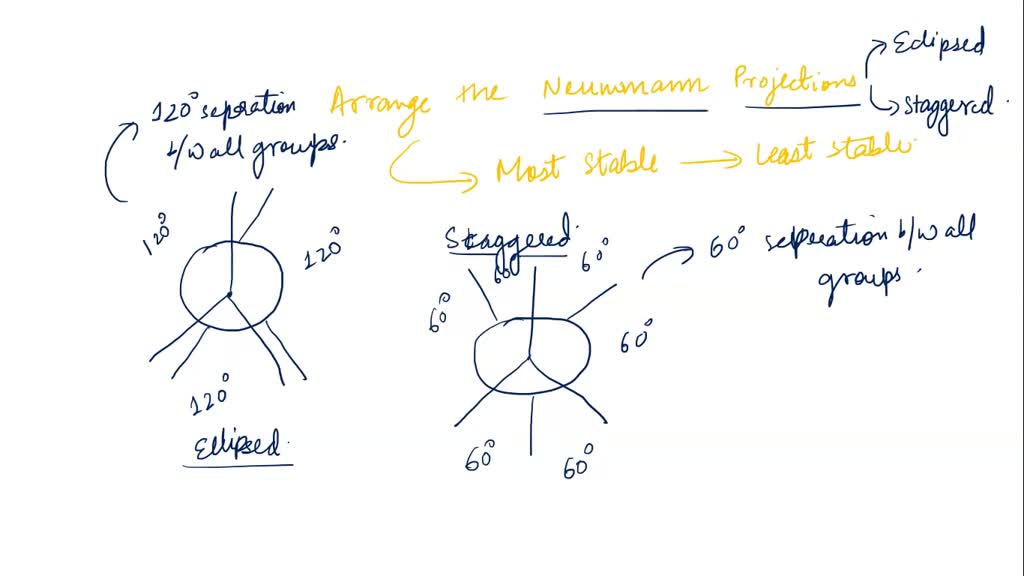 Eclipsed
120° seperation Arrange the Neuwmann Projections
Staggered.
b/w all groups.
Most Stable → Least stable
120°
120°
Staggered.
60°
60°
60° seperation b/w all
groups.
60°
60°
120°
Ecllipsed.
60°
60°